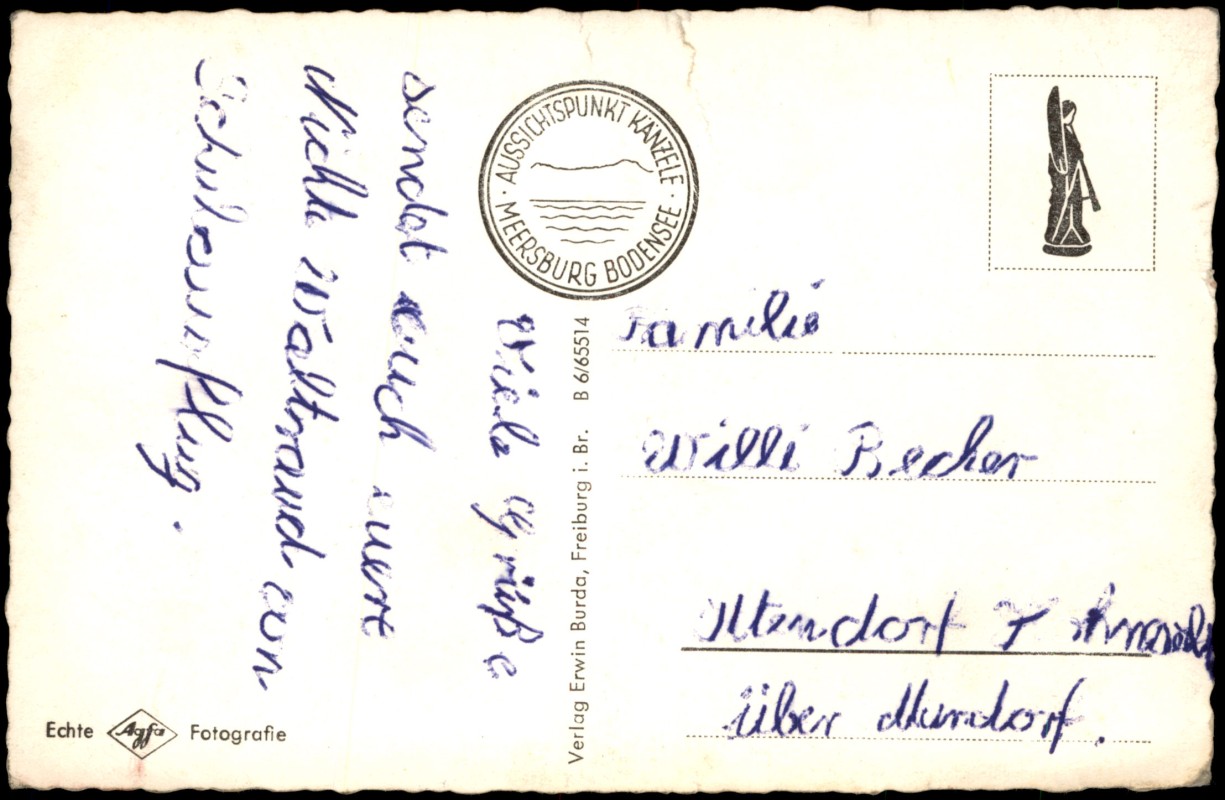 Viele Grüße
sendet euch euert
Nichte Waltraud vom
Schulausflug.
AUSSICHTSPUNKT KÄNZELE
MEERSBURG BODENSEE
Verlag Erwin Burda, Freiburg i. Br. B 6/65514
Familie
Willi Becher
Ittendorf
über Murdorf.
Echte Agfa Fotografie